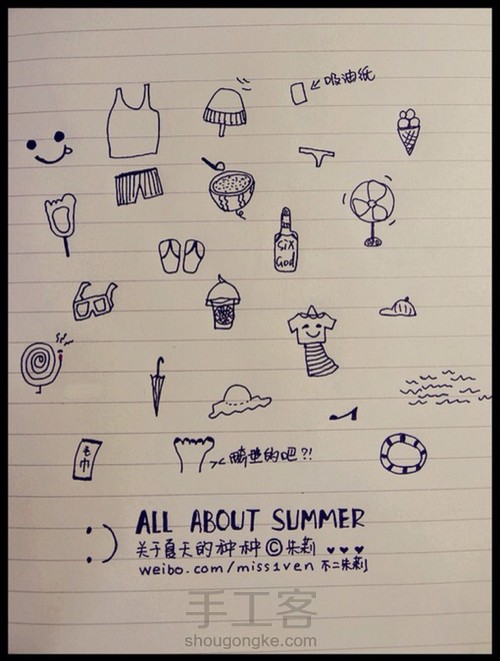 吸油纸
Six
God
毛
巾
ALL ABOUT SUMMER
关于夏天的种种©朱莉
weibo.com/miss1ven 不二朱莉
手工客
shougongke.com